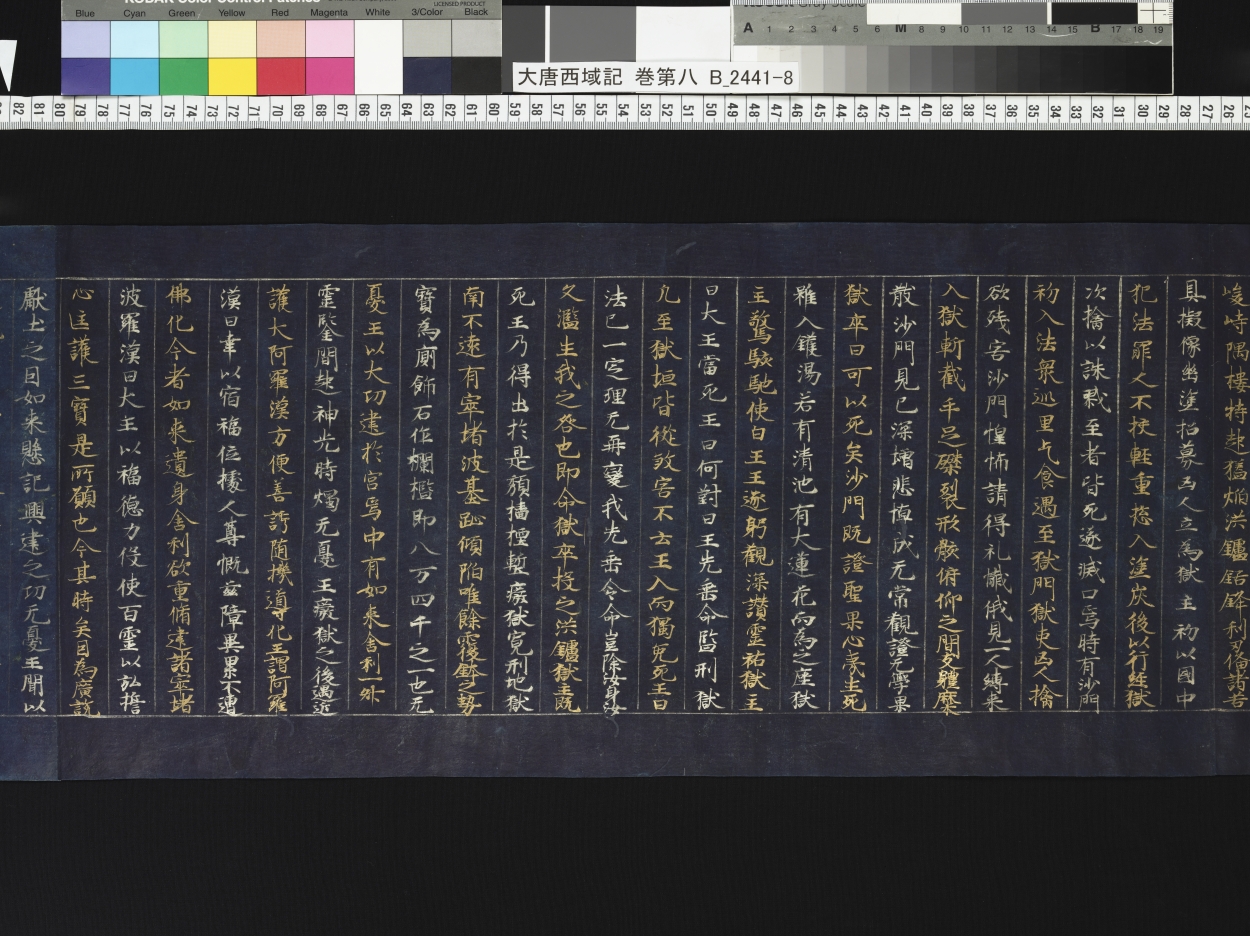 KODAK Color Control Patches
LICENSED PRODUCT
Blue Cyan Green Yellow Red Magenta White 3/Color Black
A 1 2 3 4 5 6 M 8 9 10 11 12 13 14 15 B 17 18 19
大唐西域記 巻第八 B_2441-8
82 81 80 79 78 77 76 75 74 73 72 71 70 69 68 67 66 65 64 63 62 61 60 59 58 57 56 55 54 53 52 51 50 49 48 47 46 45 44 43 42 41 40 39 38 37 36 35 34 33 32 31 30 29 28 27 26
峻峙隅樓特起猛焰洪鑪銛鋒利刃俻諸苦
具擬像幽塗招募凶人立為獄主初以國中
犯法罪人不挍輕重揔入塗炭後以行経獄
次擒以誅戮至者皆死遂滅口焉時有沙門
初入法衆巡里乞食遇至獄門獄吏凶人擒
欲残害沙門惶怖請得礼懺俄見一人縛来
入獄斬截手足磔裂形骸俯仰之間支體糜
散沙門見已深增悲悼成无常觀證无學果
獄卒曰可以死矣沙門既證聖果心夷生死
雖入鑊湯若有清池有大蓮花而為之座獄
主驚駭馳使白王王遂躬觀深讃霊祐獄主
曰大王當死王曰何對曰王先垂命監刑獄
凡至獄垣皆從致害不云王入而獨免死王曰
法已一定理无再變我先垂令命豈除汝身汝
久濫生我之咎也即命獄卒投之洪鑪獄主既
死王乃得出於是頽墻堙塹癈獄寛刑地獄
南不遠有窣堵波基趾傾陷唯餘覆鉢之勢
寶為厠飾石作欄檻即八万四千之一也无
憂王以大功建於宮焉中有如来舎利一升
霊鑒間起神光時燭无憂王癈獄之後遇近
護大阿羅漢方便善誘随機導化王謂阿羅
漢曰幸以宿福位據人尊慨玆障累不遭
佛化今者如来遺身舎利欲重脩建諸窣堵
波羅漢曰大王以福德力役使百霊以弘誓
心匡護三寶是所願也今其時矣因為廣説
獻土之因如来懸記興建之功无憂王聞以